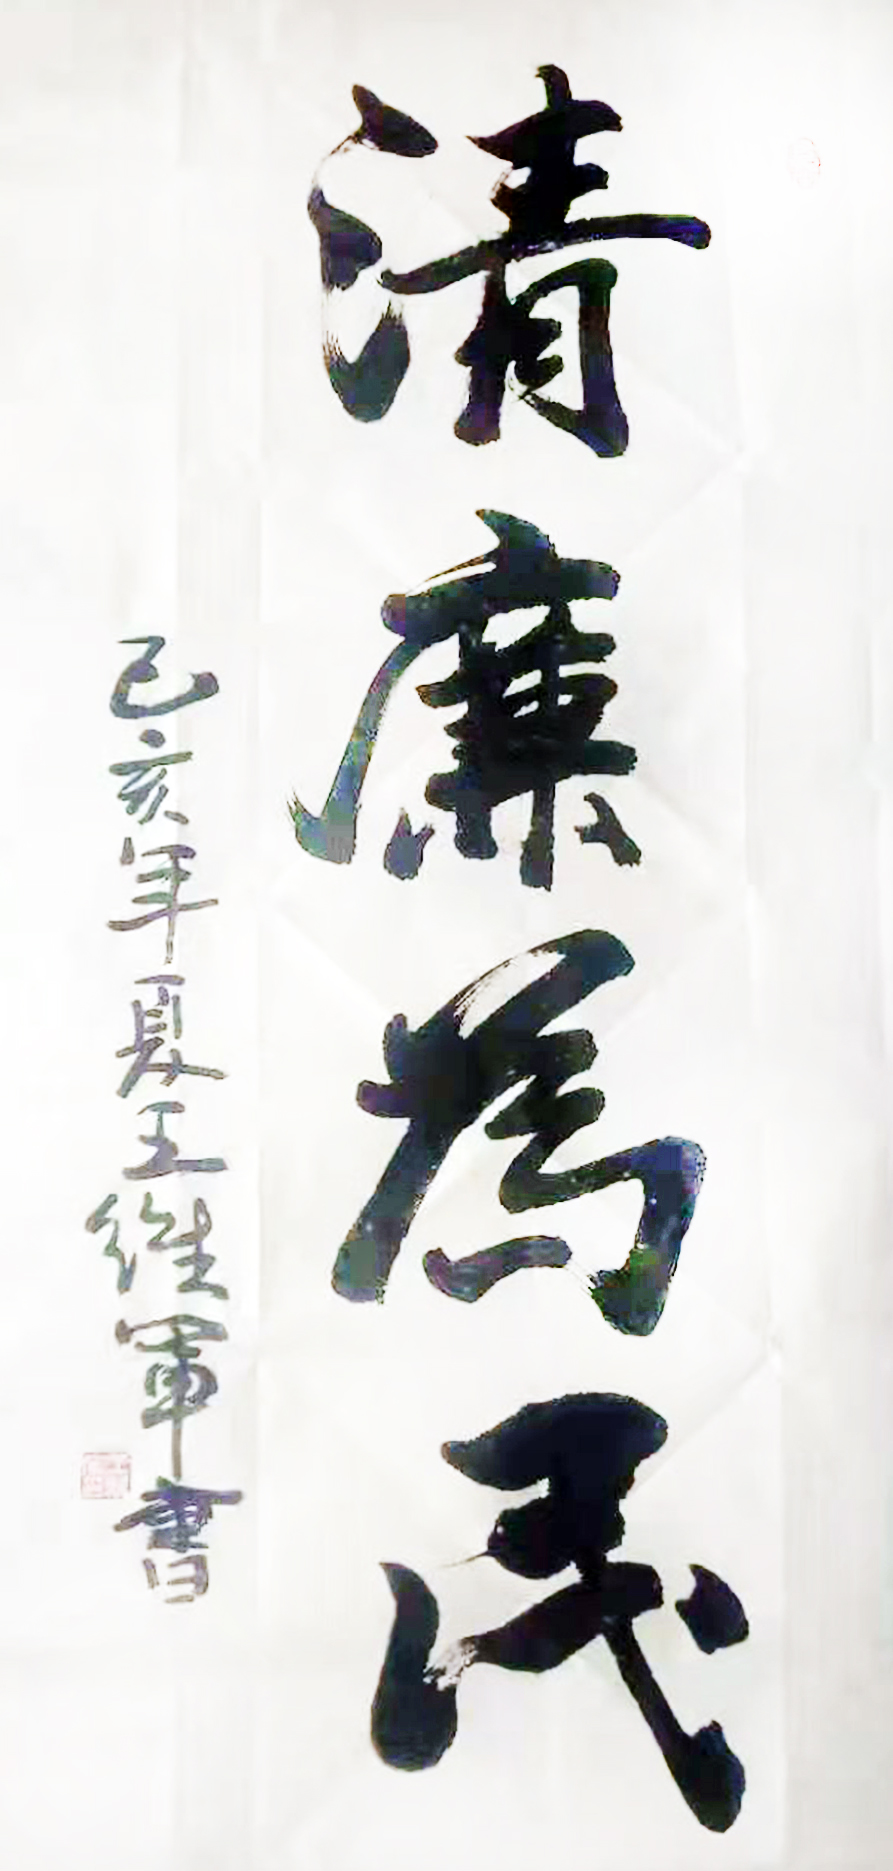 清廉為民
己亥年夏王維軍書